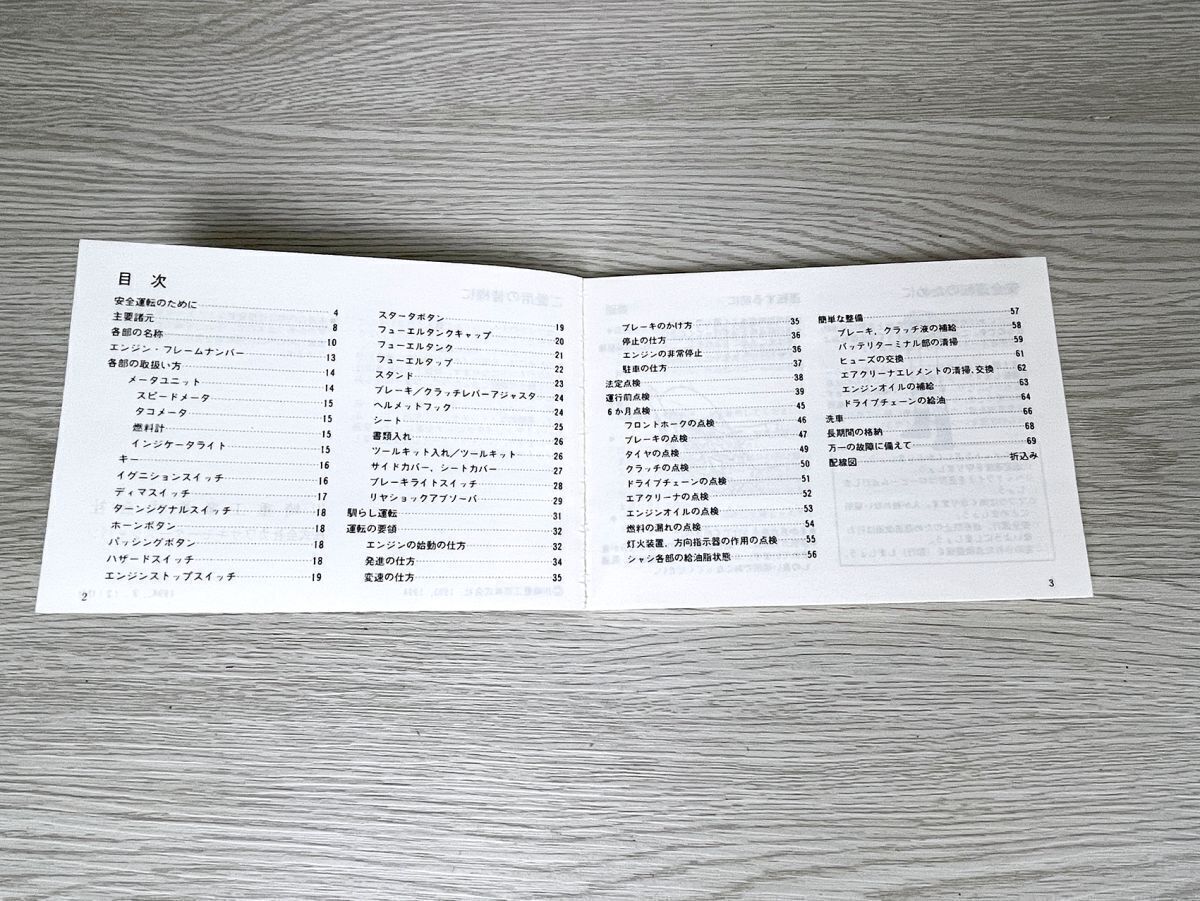 目 次
安全運転のために 4
主要諸元 8
各部の名称 10
エンジン・フレームナンバー 13
各部の取扱い方 14
メータユニット 14
スピードメータ 15
タコメータ 15
燃料計 15
インジケータライト 15
キー 16
イグニションスイッチ 16
ディマスイッチ 17
ターンシグナルスイッチ 18
ホーンボタン 18
パッシングボタン 18
ハザードスイッチ 18
エンジンストップスイッチ 19
2
スタータボタン 19
フューエルタンクキャップ 20
フューエルタンク 21
フューエルタップ 22
スタンド 23
ブレーキ／クラッチレバーアジャスタ 24
ヘルメットフック 24
シート 25
書類入れ 26
ツールキット入れ／ツールキット 26
サイドカバー、シートカバー 27
ブレーキライトスイッチ 28
リヤショックアブソーバ 29
馴らし運転 31
運転の要領 32
エンジンの始動の仕方 32
発進の仕方 34
変速の仕方 35
ブレーキのかけ方 35
停止の仕方 36
エンジンの非常停止 36
駐車の仕方 37
法定点検 38
運行前点検 39
6か月点検 45
フロントホークの点検 46
ブレーキの点検 47
タイヤの点検 49
クラッチの点検 50
ドライブチェーンの点検 51
エアクリーナの点検 52
エンジンオイルの点検 53
燃料の漏れの点検 54
灯火装置、方向指示器の作用の点検 55
シャシ各部の給油脂状態 56
簡単な整備 57
ブレーキ、クラッチ液の補給 58
バッテリターミナル部の清掃 59
ヒューズの交換 61
エアクリーナエレメントの清掃、交換 62
エンジンオイルの補給 63
ドライブチェーンの給油 64
洗車 66
長期間の格納 68
万一の故障に備えて 69
配線図 折込み
3